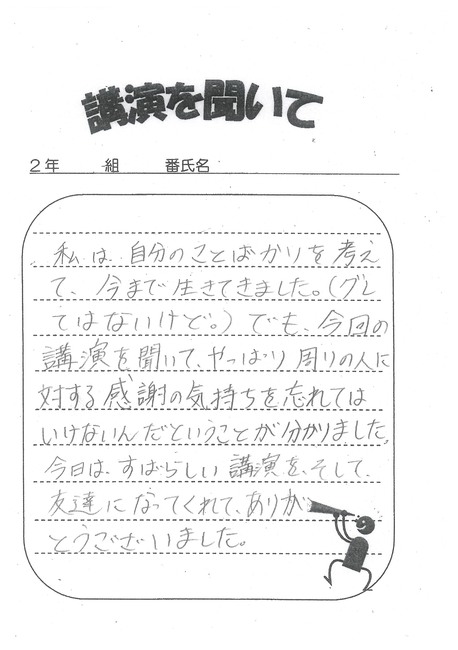 講演を聞いて
2年 組 番氏名
私は自分のことばかりを考え
て、今まで生きてきました。(グレ
てはないけど。)でも、今回の
講演を聞いて、やっぱり周りの人に
対する感謝の気持ちを忘れては
いけないんだということが分かりました。
今日は、すばらしい講演を、そして、
友達になってくれて、ありが
とうございました。